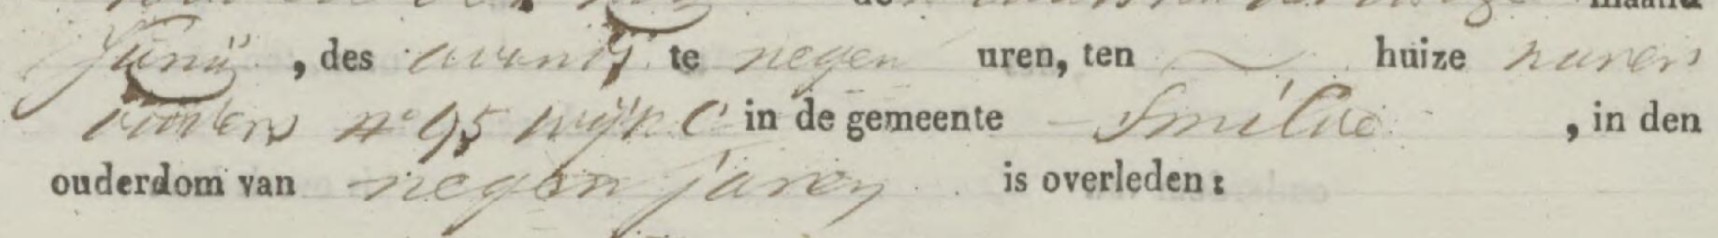 maand
Junij , des avonds te negen uren, ten huize haren
vaders N° 95 wijk C in de gemeente Smilde , in den
ouderdom van negen jaren is overleden: